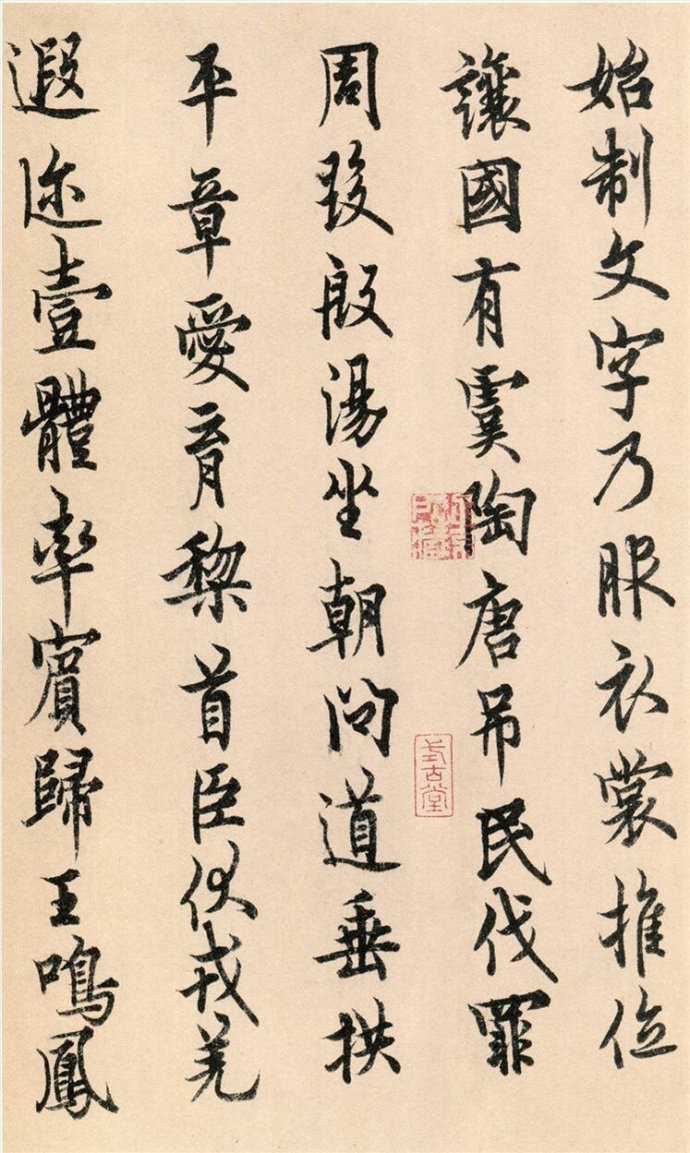 始制文字乃服衣裳推位
讓國有虞陶唐吊民伐罪
周發殷湯坐朝問道垂拱
平章愛育黎首臣伏戎羌
遐迩壹體率賓歸王鳴鳳
式古堂